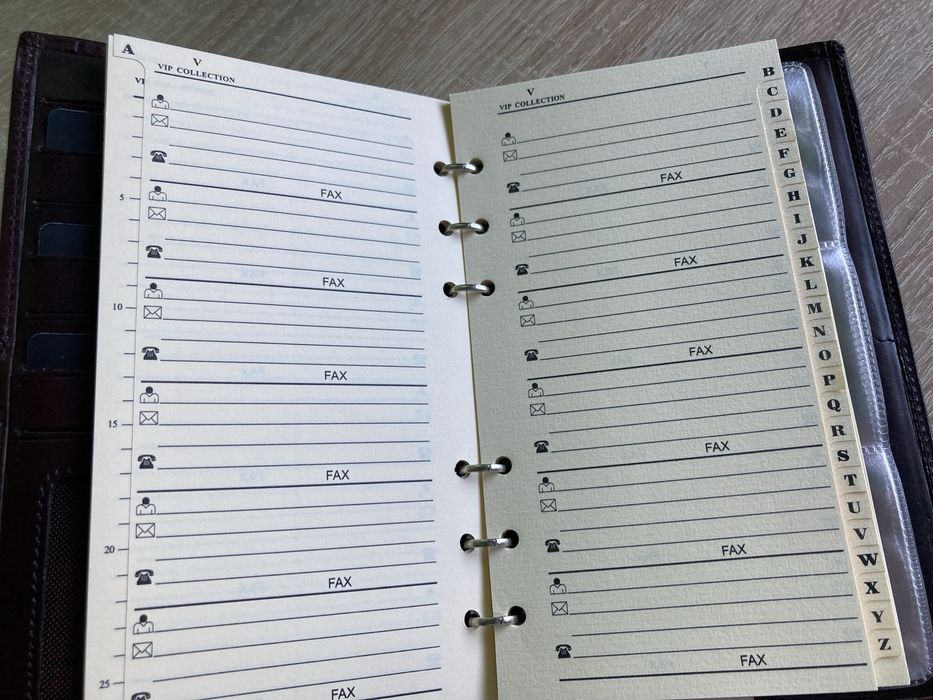 A
V
VIP COLLECTION
VI
FAX
5
FAX
10
FAX
15
FAX
20
FAX
25
FAX
V
VIP COLLECTION
FAX
FAX
FAX
FAX
FAX
FAX
B
C
D
E
F
G
H
I
J
K
L
M
N
O
P
Q
R
S
T
U
V
W
X
Y
Z